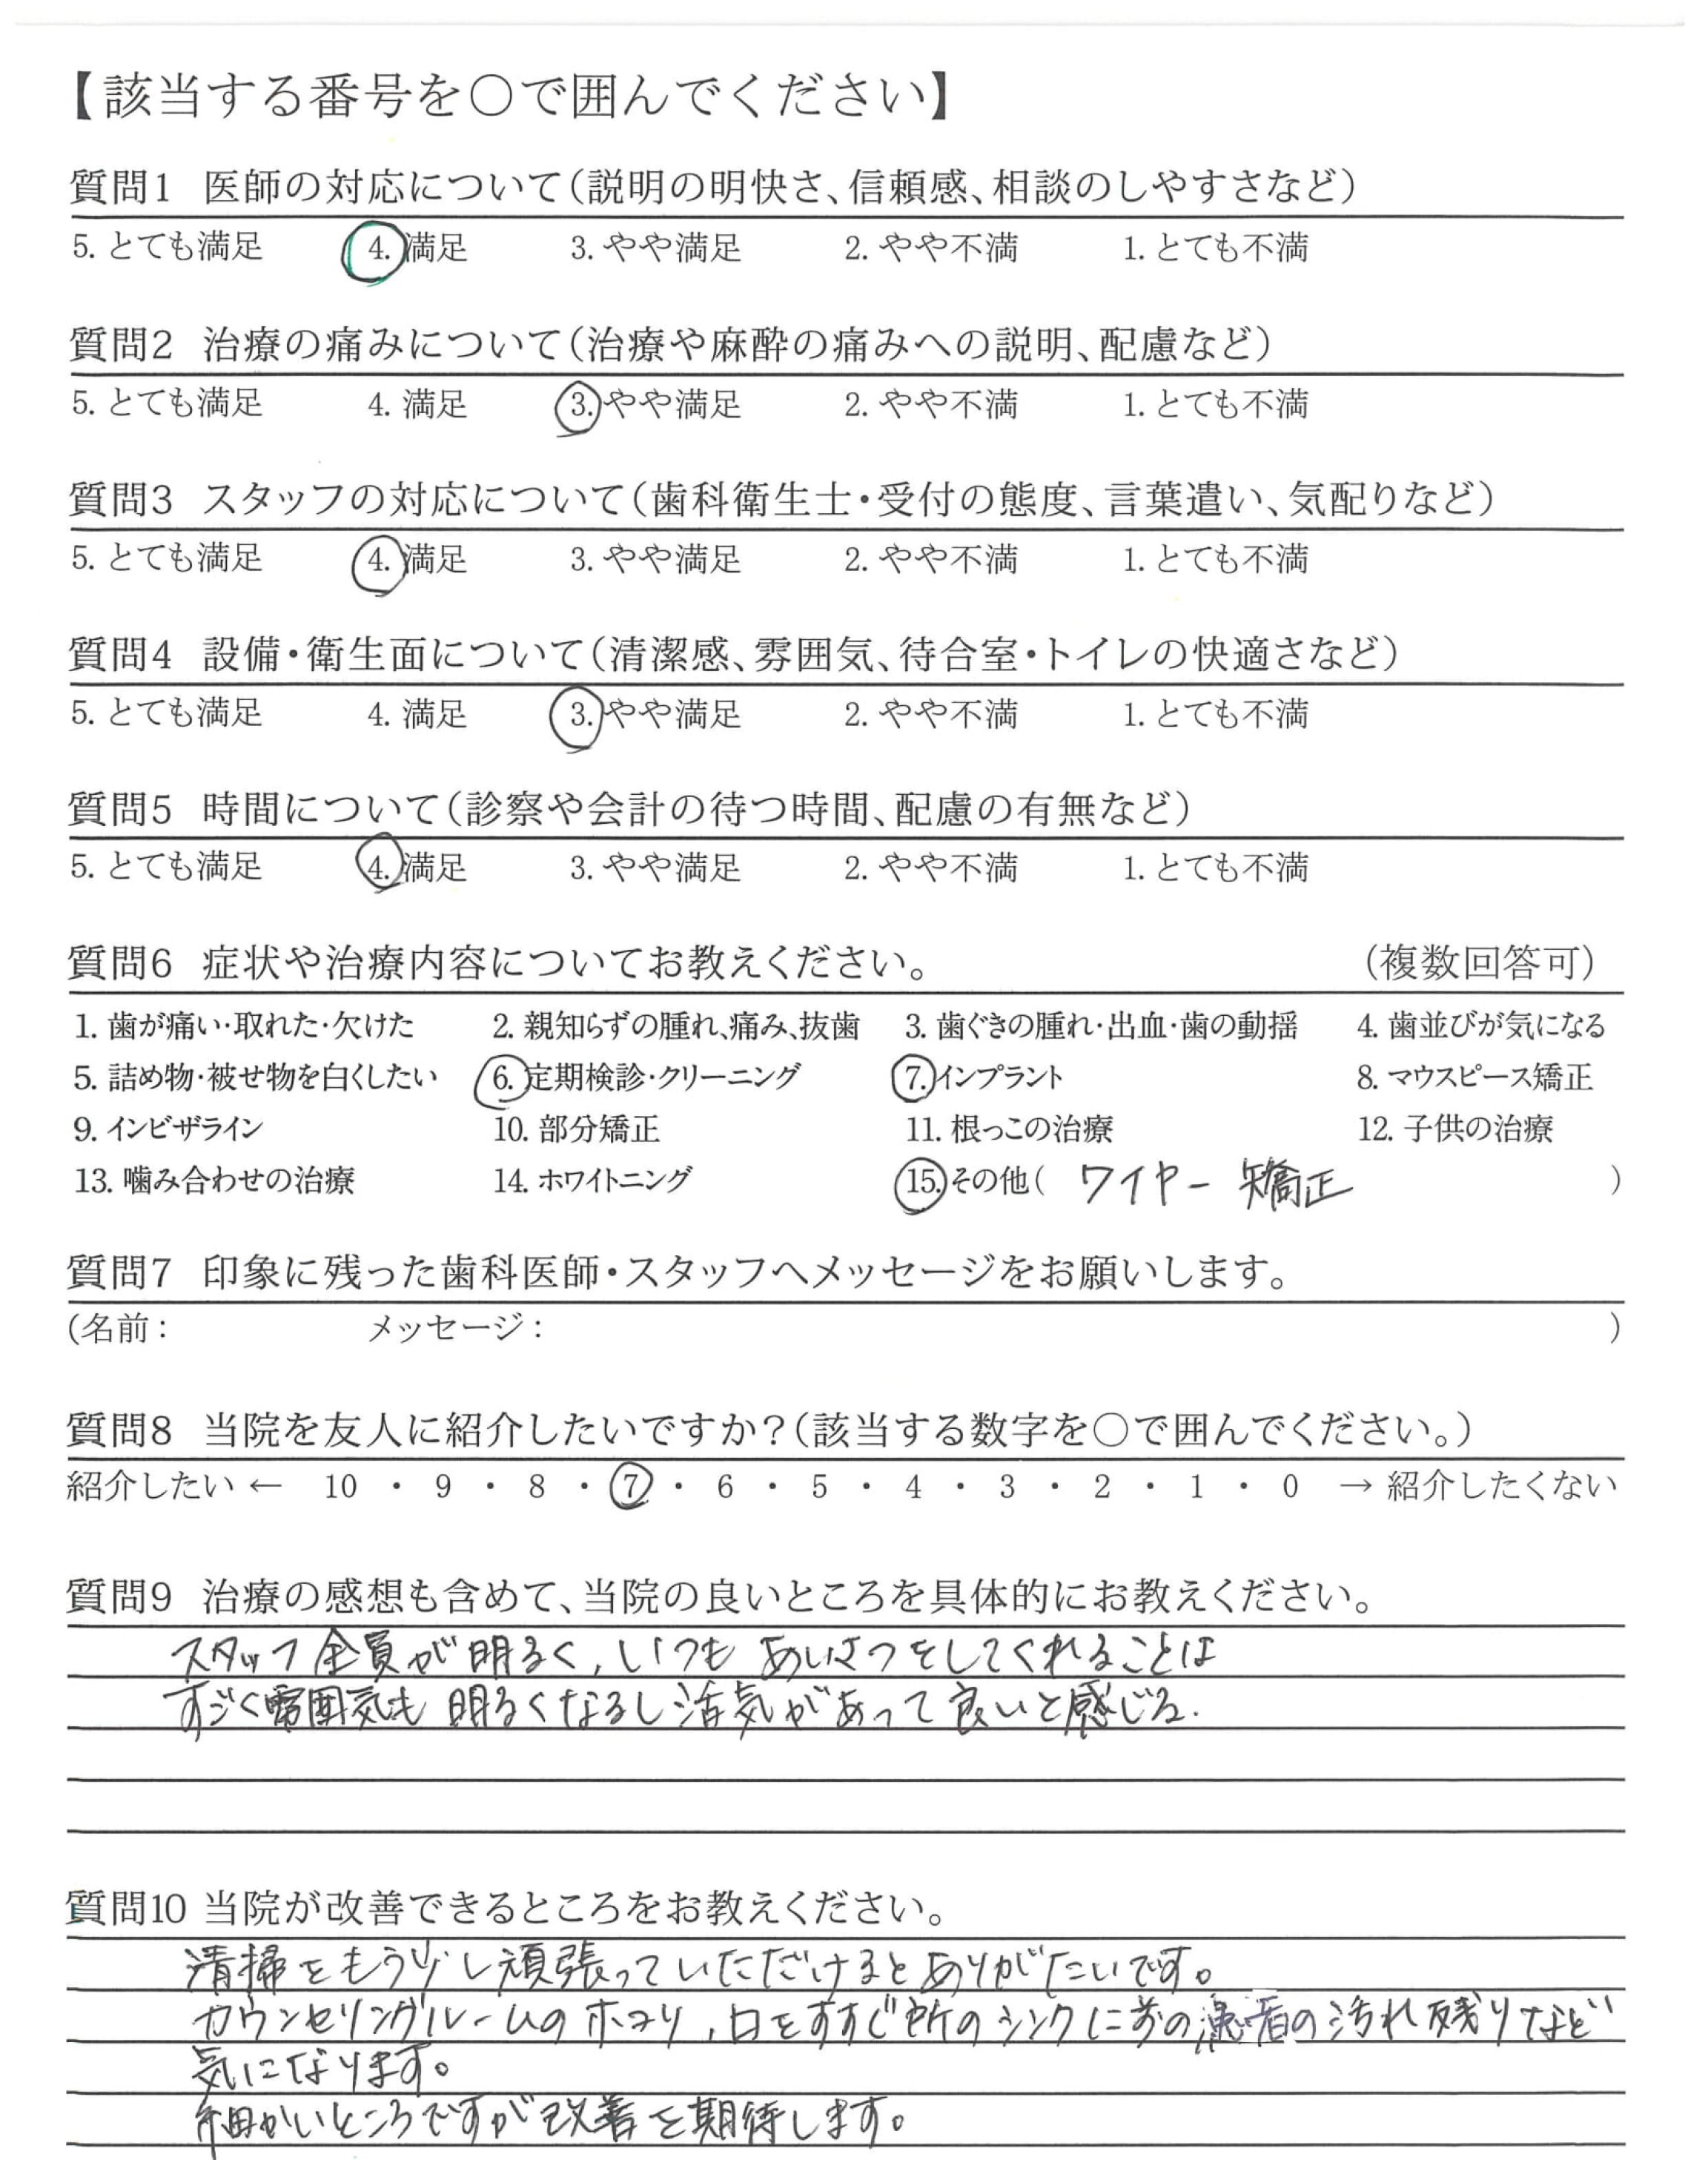 【該当する番号を○で囲んでください】
質問1 医師の対応について(説明の明快さ、信頼感、相談のしやすさなど)
5. とても満足 4. 満足 3. やや満足 2. やや不満 1. とても不満
質問2 治療の痛みについて(治療や麻酔の痛みへの説明、配慮など)
5. とても満足 4. 満足 3. やや満足 2. やや不満 1. とても不満
質問3 スタッフの対応について(歯科衛生士・受付の態度、言葉遣い、気配りなど)
5. とても満足 4. 満足 3. やや満足 2. やや不満 1. とても不満
質問4 設備・衛生面について(清潔感、雰囲気、待合室・トイレの快適さなど)
5. とても満足 4. 満足 3. やや満足 2. やや不満 1. とても不満
質問5 時間について(診察や会計の待つ時間、配慮の有無など)
5. とても満足 4. 満足 3. やや満足 2. やや不満 1. とても不満
質問6 症状や治療内容についてお教えください。 (複数回答可)
1. 歯が痛い・取れた・欠けた 2. 親知らずの腫れ、痛み、抜歯 3. 歯ぐきの腫れ・出血・歯の動揺 4. 歯並びが気になる
5. 詰め物・被せ物を白くしたい 6. 定期検診・クリーニング 7. インプラント 8. マウスピース矯正
9. インビザライン 10. 部分矯正 11. 根っこの治療 12. 子供の治療
13. 噛み合わせの治療 14. ホワイトニング 15. その他( ワイヤー矯正 )
質問7 印象に残った歯科医師・スタッフへメッセージをお願いします。
(名前: メッセージ: )
質問8 当院を友人に紹介したいですか?(該当する数字を○で囲んでください。)
紹介したい ← 10 ・ 9 ・ 8 ・ 7 ・ 6 ・ 5 ・ 4 ・ 3 ・ 2 ・ 1 ・ 0 → 紹介したくない
質問9 治療の感想も含めて、当院の良いところを具体的にお教えください。
スタッフ全員が明るく、いつもあいさつをしてくれることは
すごく雰囲気も明るくなるし活気があって良いと感じる.
質問10 当院が改善できるところをお教えください。
清掃をもう少し頑張っていただけるとありがたいです。
カウンセリングルームのホコリ、口をすすぐ所のシンクに前の患者の汚れ残りなど
気になります。
細かいところですが改善を期待します。